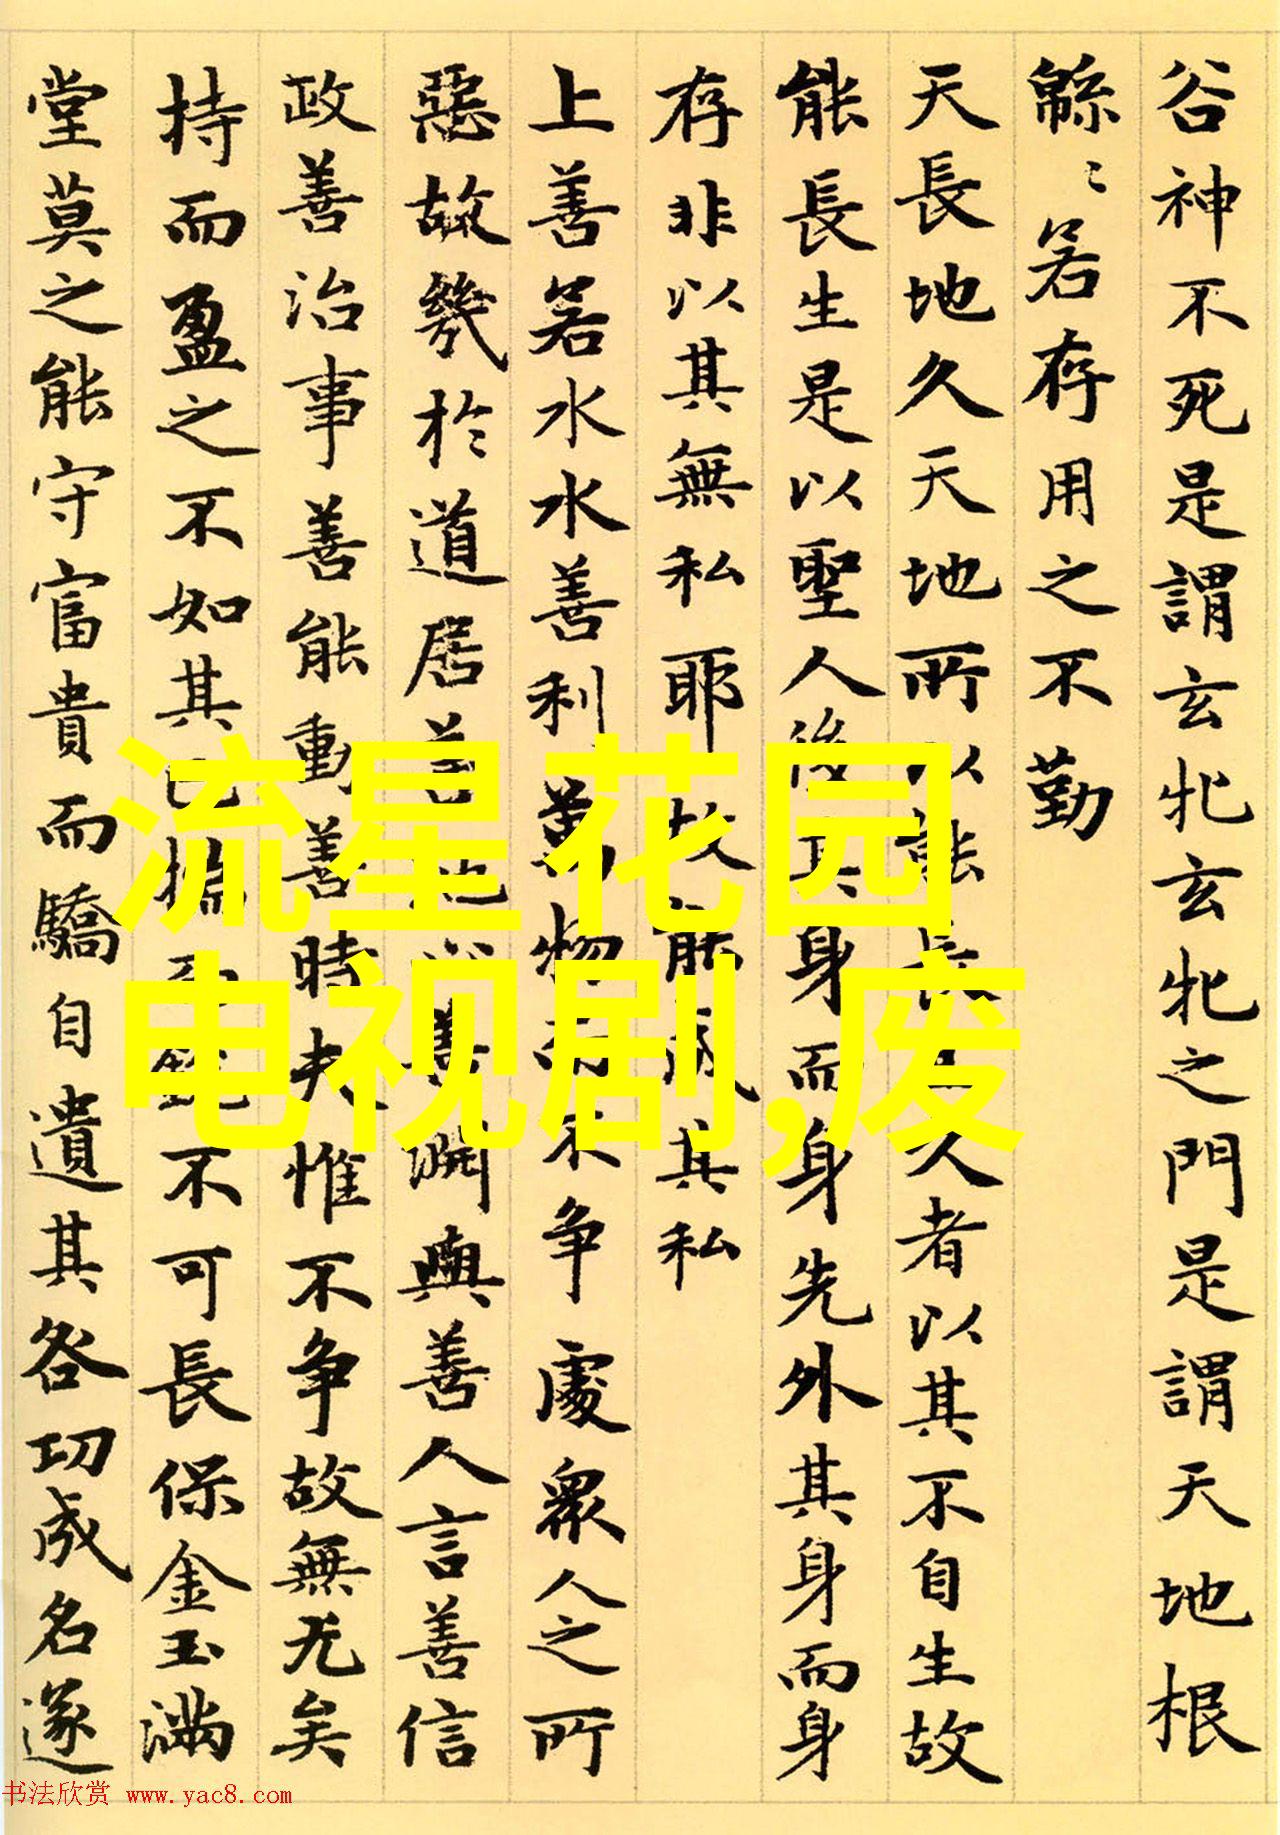 谷神不死是謂玄牝玄牝之門是謂天地根
緜〻若存用之不勤
天長地久天地所以能長且久者以其不自生故
能長生是以聖人後其身而身先外其身而身
存非以其無私耶故能成其私
上善若水水善利萬物而不争處衆人之所
惡故幾於道居善地心善淵與善人言善信
政善治事善能動善時夫惟不争故無尤矣
持而盈之不如其已揣而銳不可長保金玉滿
堂莫之能守富貴而驕自遺其咎功成名遂
流星花园
电视剧,废
书法欣赏 www.yac8.com